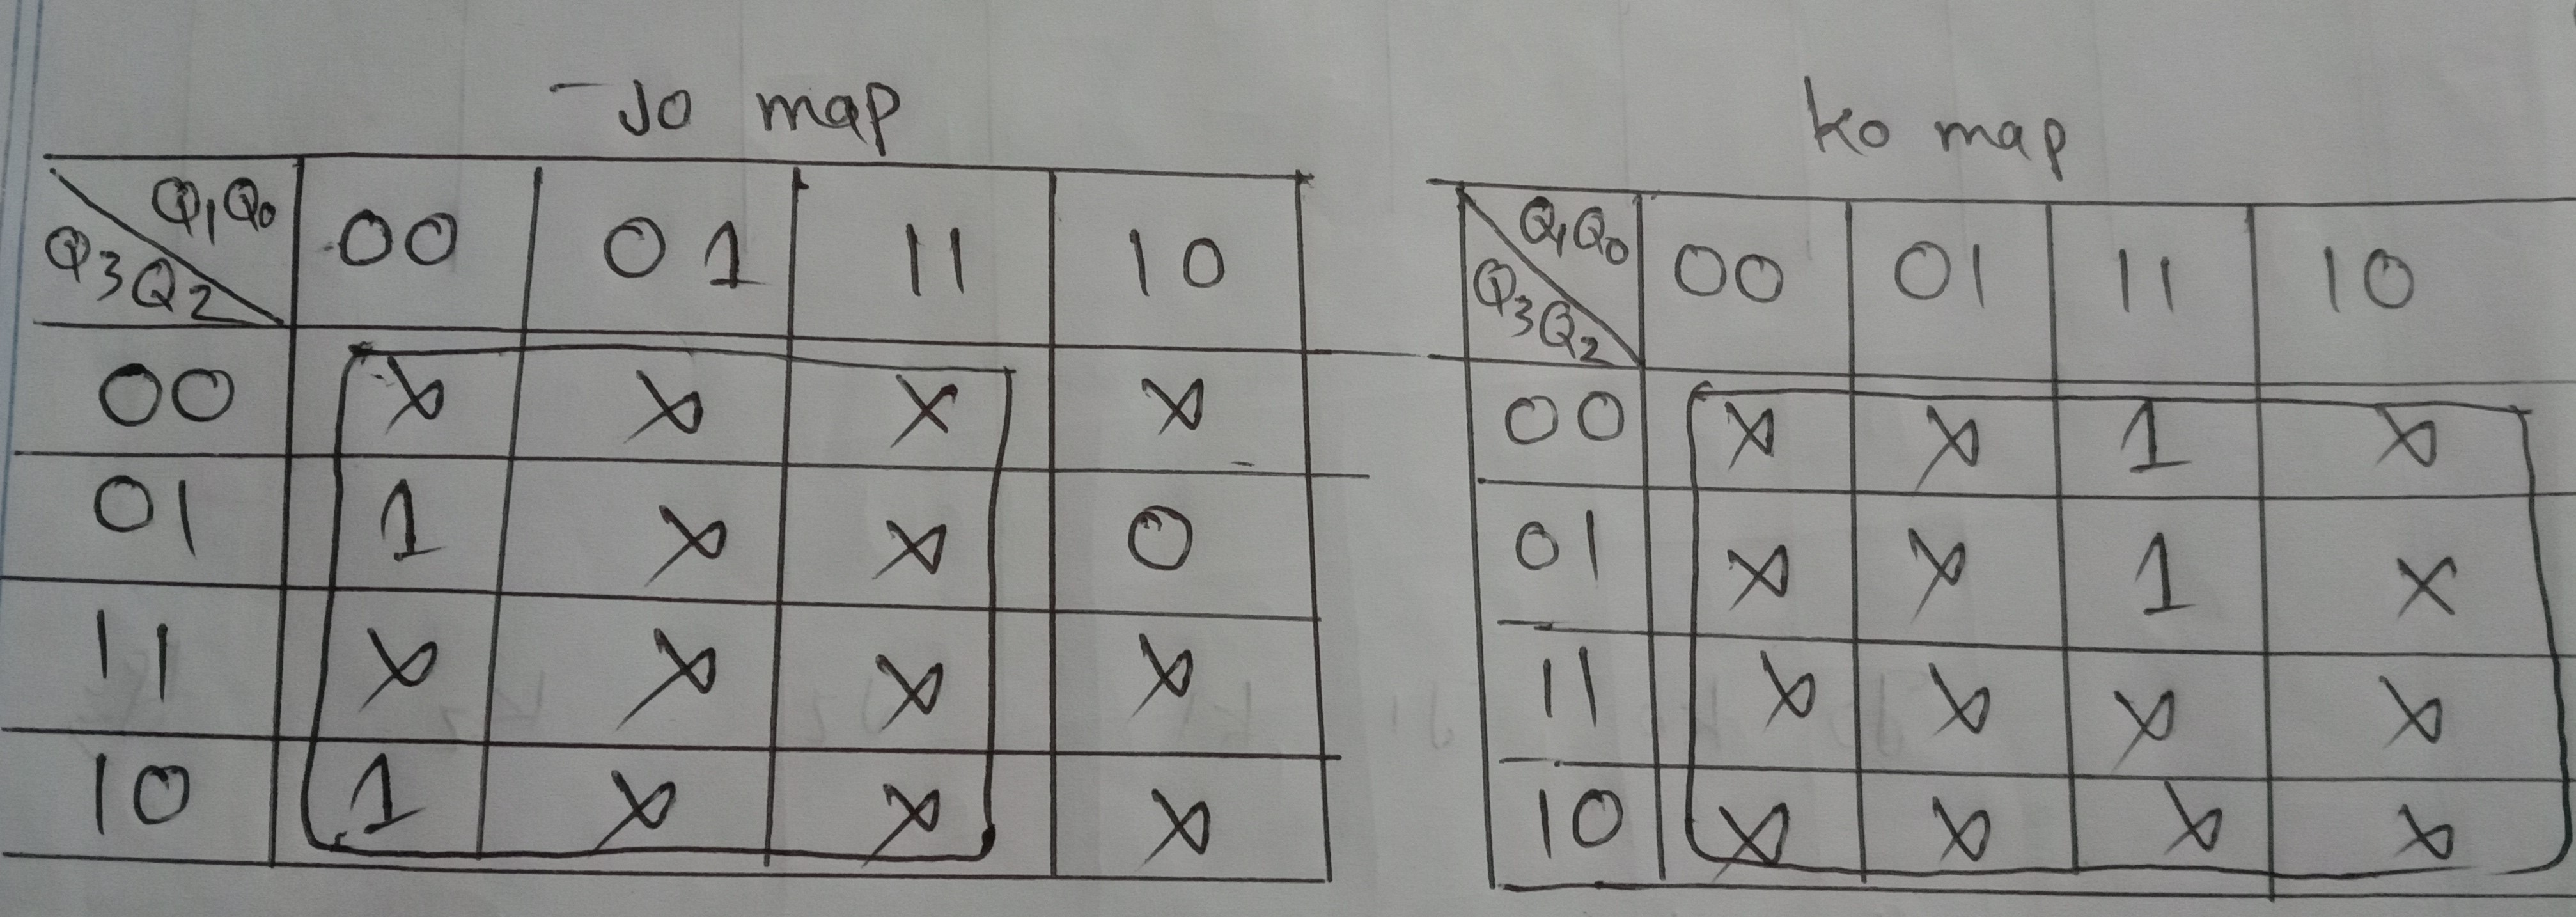 Jo map
Q1Q0 Q3Q2 00 01 11 10
00 x x x x
01 1 x x 0
11 x x x x
10 1 x x x
ko map
Q1Q0 Q3Q2 00 01 11 10
00 x x 1 x
01 x x 1 x
11 x x x x
10 x x x x